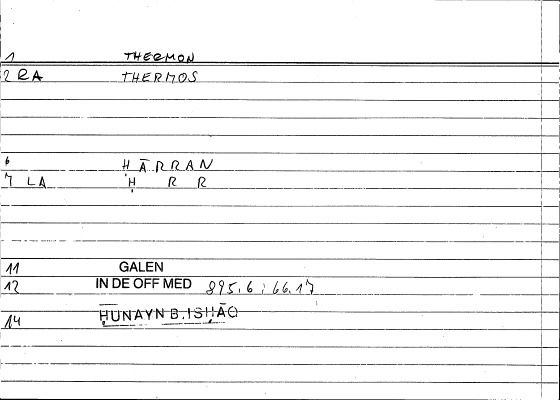 1 THERMON
2 RA THERMOS
6 ḤARRĀN
7 LA Ḥ R R
11 GALEN
12 IN DE OFF MED 895.6 ; 66.17
14 ḤUNAYN B. ISḤĀQ